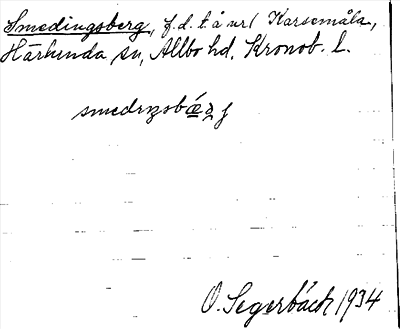 Smedingsberg, f.d. t å url Karsemåla,
Härlunda sn, Allbo hd, Kronob. l.
O. Segerbäck 1934